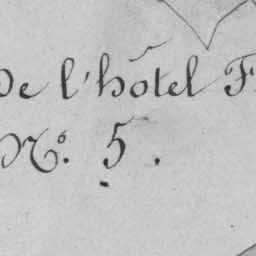 De l'hôtel F
Nº. 5.